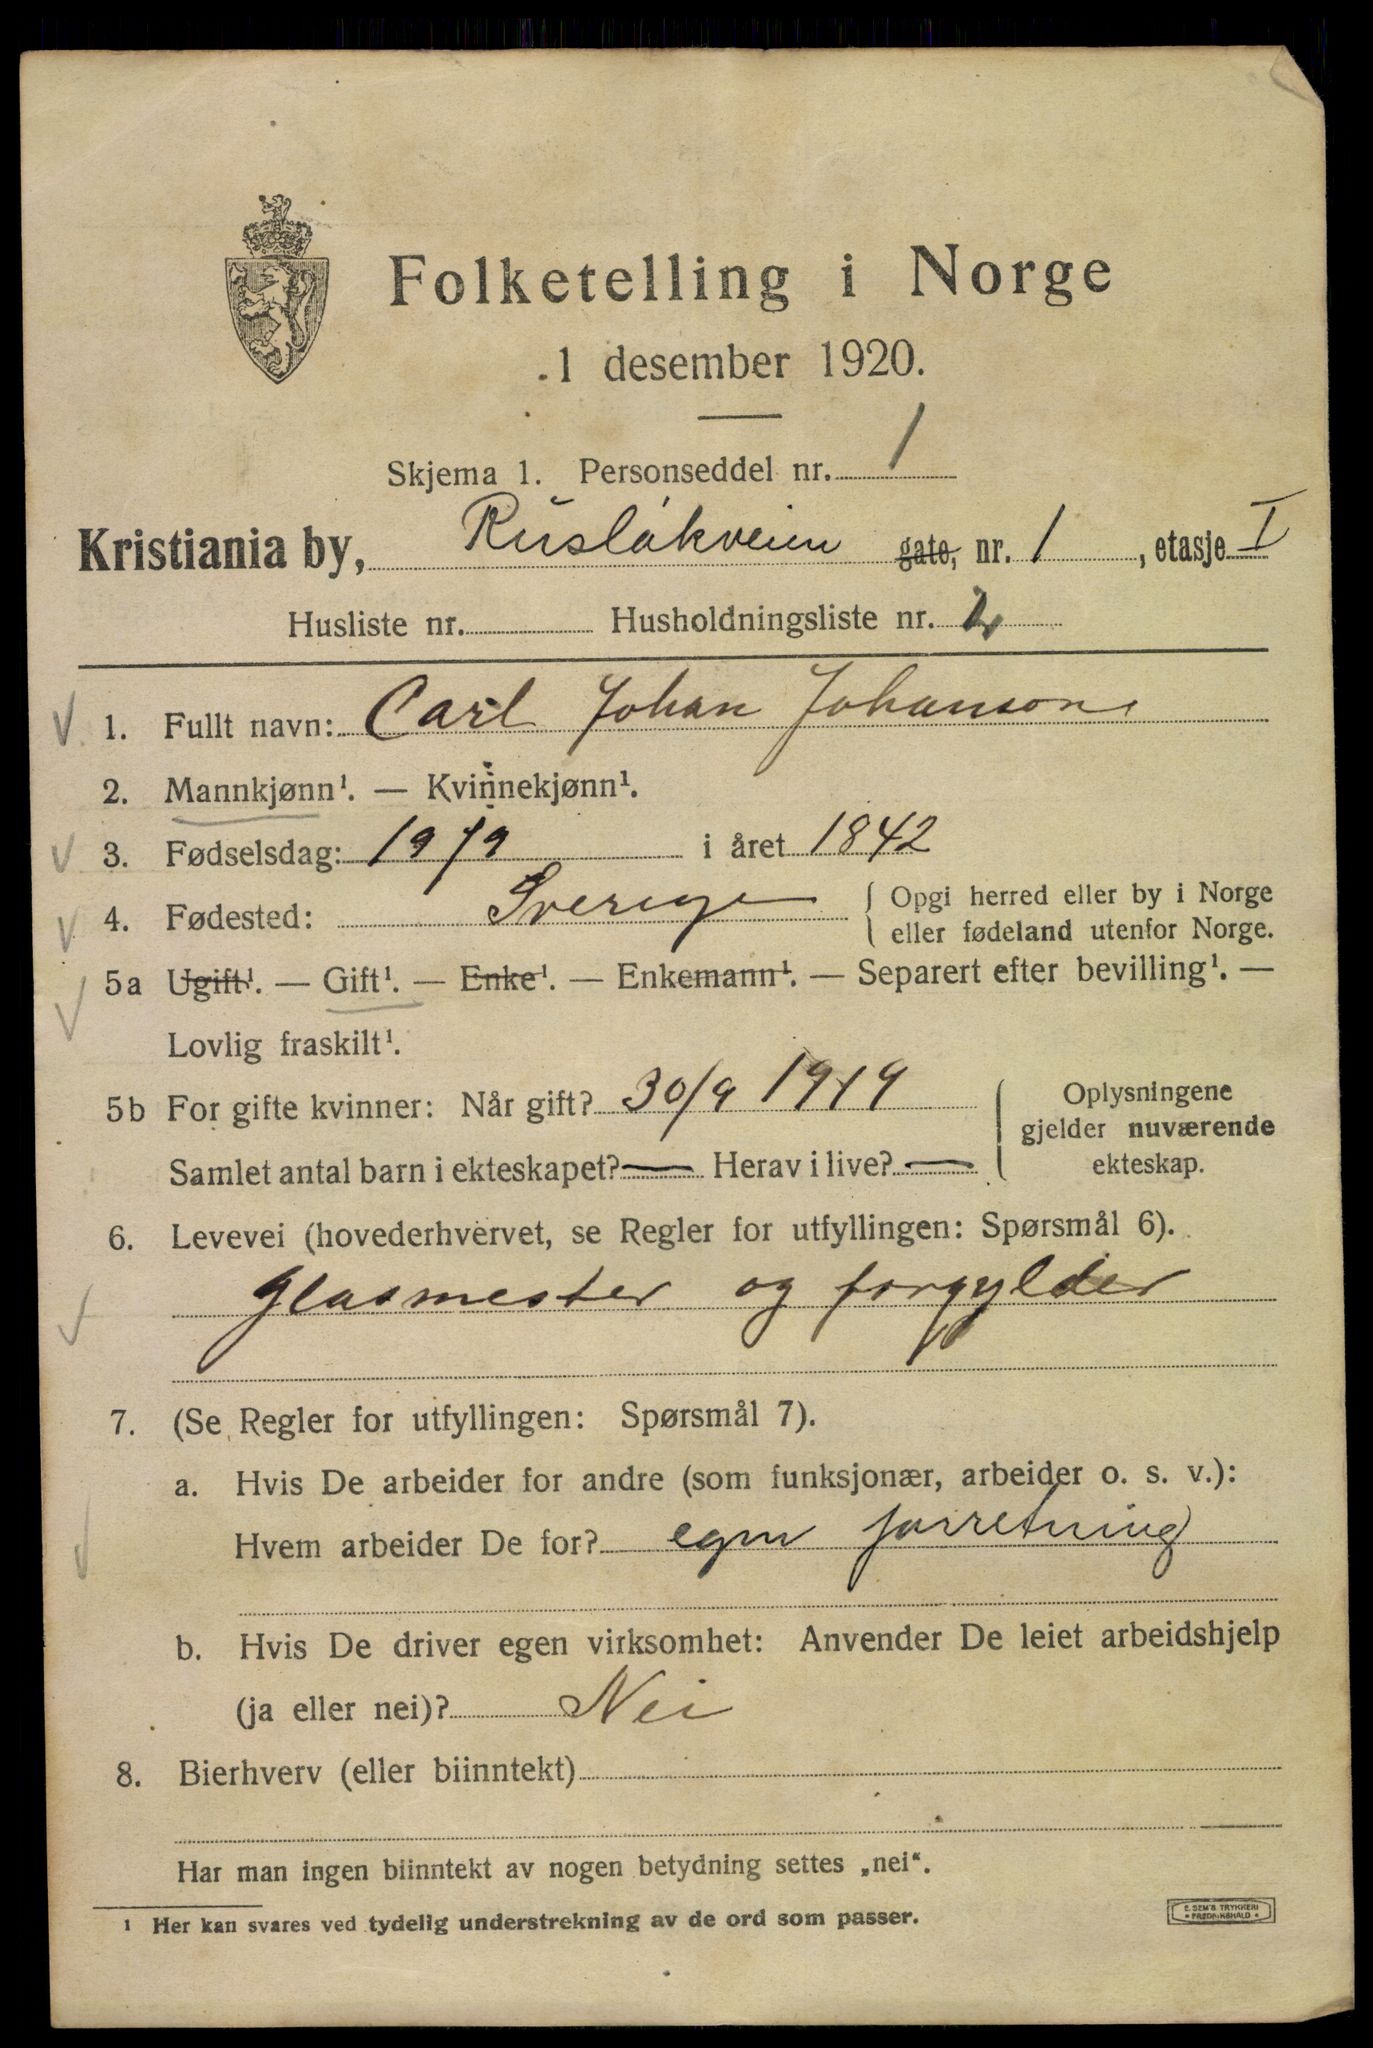 Folketelling i Norge
1 desember 1920.
Skjema 1. Personseddel nr. 1
Kristiania by, Rusløkveien gate, nr. 1, etasje I
Husliste nr. Husholdningsliste nr. 2
1. Fullt navn: Carl Johan Johanson
2. Mannkjønn¹. — Kvinnekjønn¹.
3. Fødselsdag: 19/9 i året 1842
4. Fødested: Sverige { Opgi herred eller by i Norge
eller fødeland utenfor Norge.
5a Ugift¹. — Gift¹. — Enke¹. — Enkemann¹. — Separert efter bevilling¹. —
Lovlig fraskilt¹.
5b For gifte kvinner: Når gift? 30/9 1919
Samlet antal barn i ekteskapet? — Herav i live? —
Oplysningene
gjelder nuværende
ekteskap.
6. Levevei (hovederhvervet, se Regler for utfyllingen: Spørsmål 6).
Glasmester og forgylder
7. (Se Regler for utfyllingen: Spørsmål 7).
a. Hvis De arbeider for andre (som funksjonær, arbeider o. s. v.):
Hvem arbeider De for? egen forretning
b. Hvis De driver egen virksomhet: Anvender De leiet arbeidshjelp
(ja eller nei)? Nei
8. Bierhverv (eller biinntekt)
Har man ingen biinntekt av nogen betydning settes „nei“.
¹ Her kan svares ved tydelig understrekning av de ord som passer.
E. SEM'S TRYKKERI
* FREDRIKSHALD *